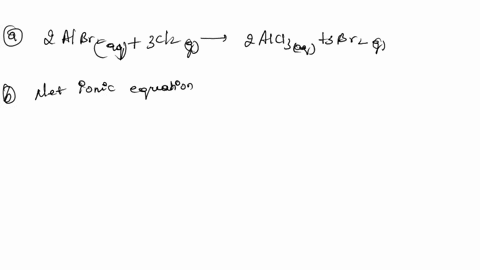 (a) 2 AlBr(aq) + 3Cl2(g) → 2 AlCl3(aq) + 3Br2(g)
(b) Net ionic equation